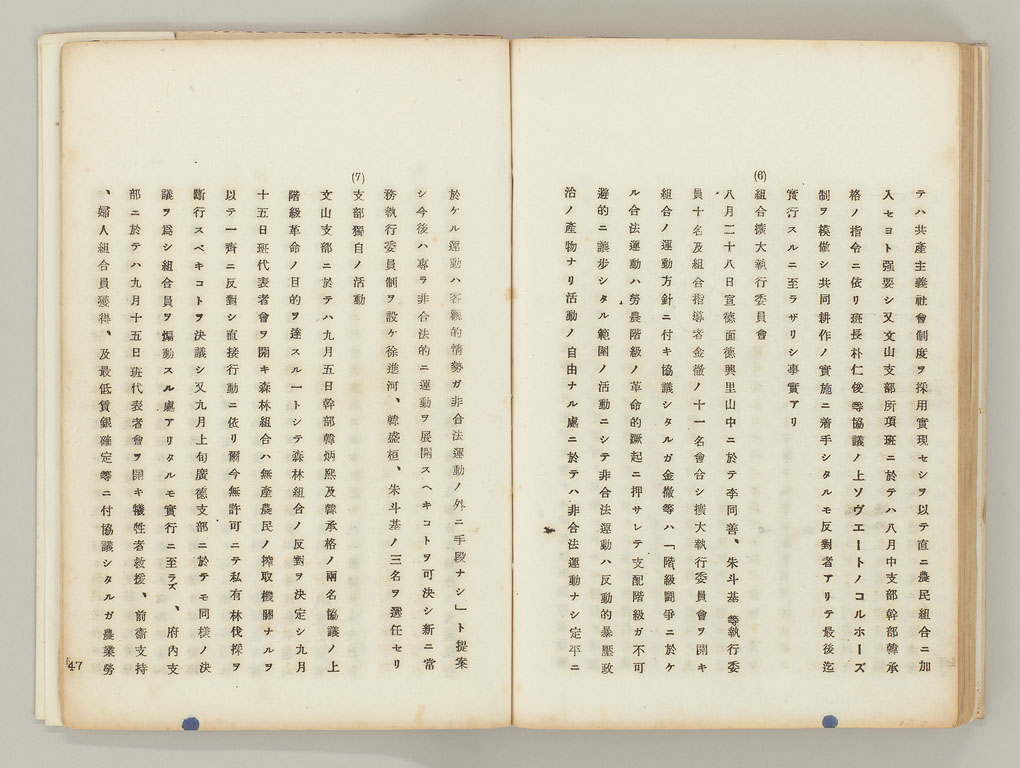 テハ共産主義社會制度ヲ採用實現セシヲ以テ直ニ農民組合ニ加
入セヨト强要シ又文山支部所項班ニ於テハ八月中支部幹部韓承
格ノ指令ニ依リ班長朴仁俊等協議ノ上ソヴエートノコルホーズ
制ヲ模倣シ共同耕作ノ實施ニ着手シタルモ反對者アリテ最後迄
實行スルニ至ラザリシ事實アリ
(6)
組合擴大執行委員會
八月二十八日宣德面德興里山中ニ於テ李同善、朱斗基等執行委
員十名及組合指導者金徹ノ十一名會合シ擴大執行委員會ヲ開キ
組合ノ運動方針ニ付キ協議シタルガ金徹等ハ「階級鬪爭ニ於ケ
ル合法運動ハ勞農階級ノ革命的蹶起ニ押サレテ支配階級ガ不可
避的ニ讓步シタル範圍ノ活動ニシテ非合法運動ハ反動的暴壓政
治ノ産物ナリ活動ノ自由ナル處ニ於テハ非合法運動ナシ定平ニ
於ケル運動ハ客觀的情勢ガ非合法運動ノ外ニ手段ナシ」ト提案
シ今後ハ專ラ非合法的ニ運動ヲ展開スヘキコトヲ可決シ新ニ常
務執行委員制ヲ設ケ徐進河、韓盛桓、朱斗基ノ三名ヲ選任セリ
(7)
支部獨自ノ活動
文山支部ニ於テハ九月五日幹部韓炳熙及韓承格ノ兩名協議ノ上
階級革命ノ目的ヲ達スル一トシテ森林組合ノ反對ヲ決定シ九月
十五日班代表者會ヲ開キ森林組合ハ無產農民ノ搾取機關ナルヲ
以テ一齊ニ反對シ直接行動ニ依リ爾今無許可ニテ私有林伐採ヲ
斷行スベキコトヲ決議シ又九月上旬廣德支部ニ於テモ同樣ノ決
議ヲ爲シ組合員ヲ煽動スル處アリタルモ實行ニ至ラズ、府內支
部ニ於テハ九月十五日班代表者會ヲ開キ犧牲者救援、前衞支持
、婦人組合員獲得、及最低賃銀確定等ニ付協議シタルガ農業勞
47